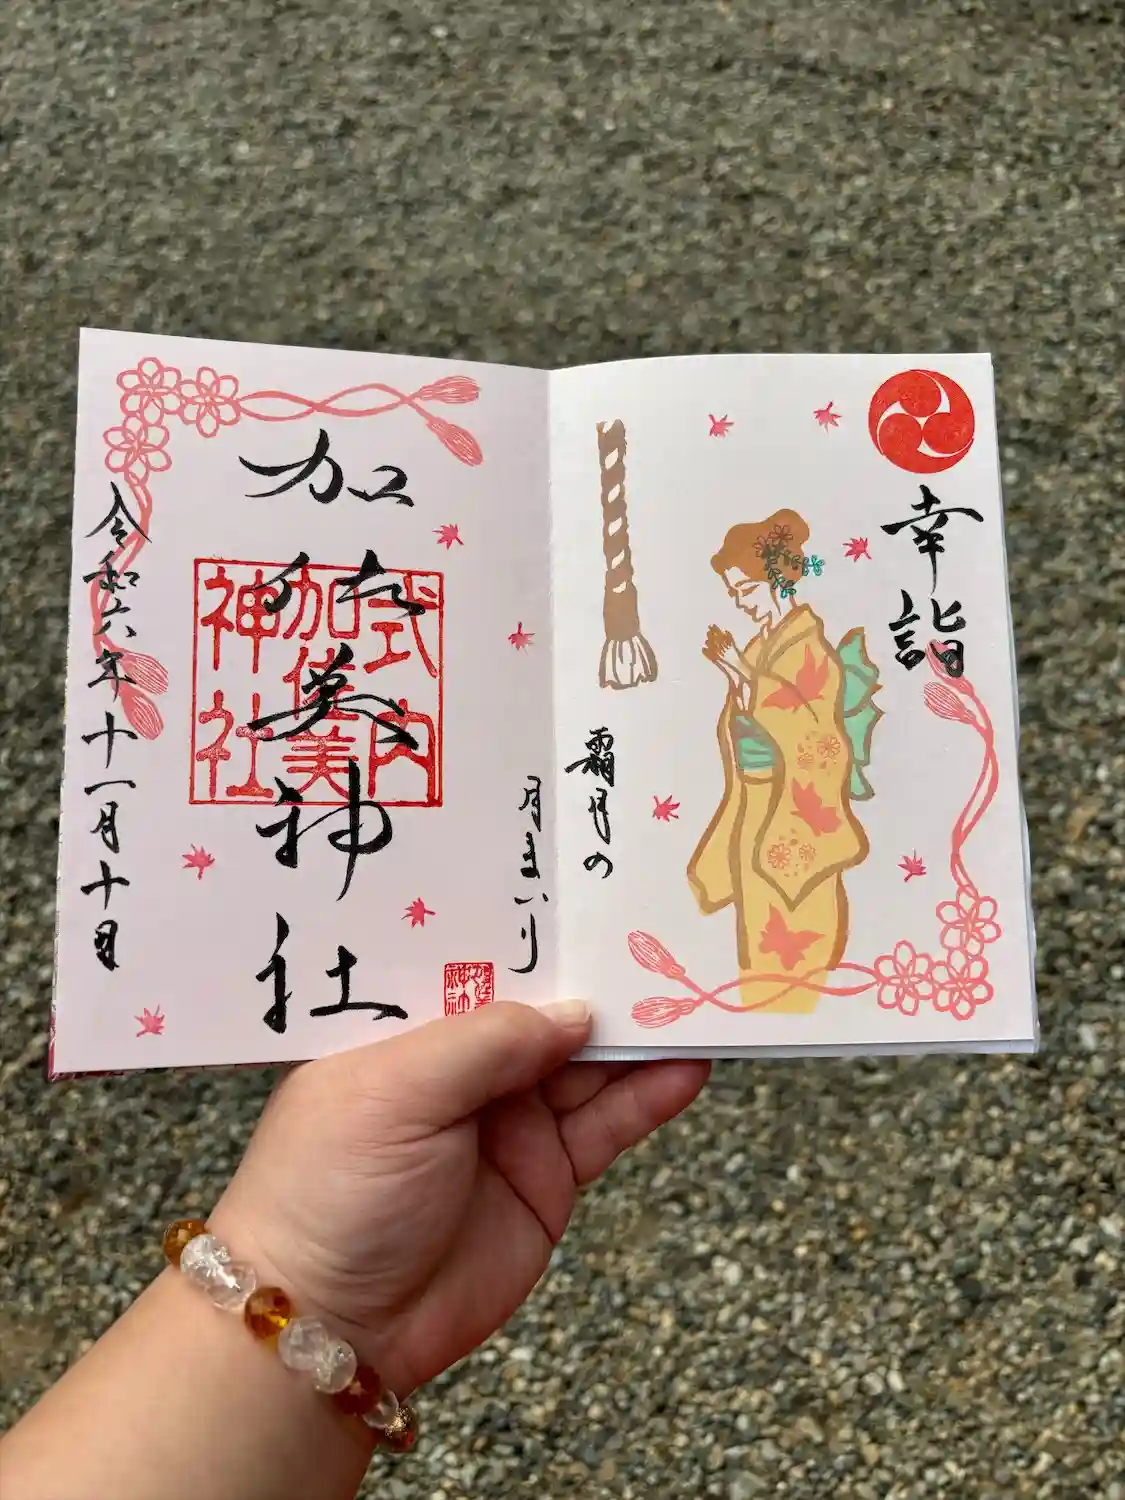 幸詣
霜月の
月まいり
加佐美神社
式内
加佐美
神社
令和六年十一月十日